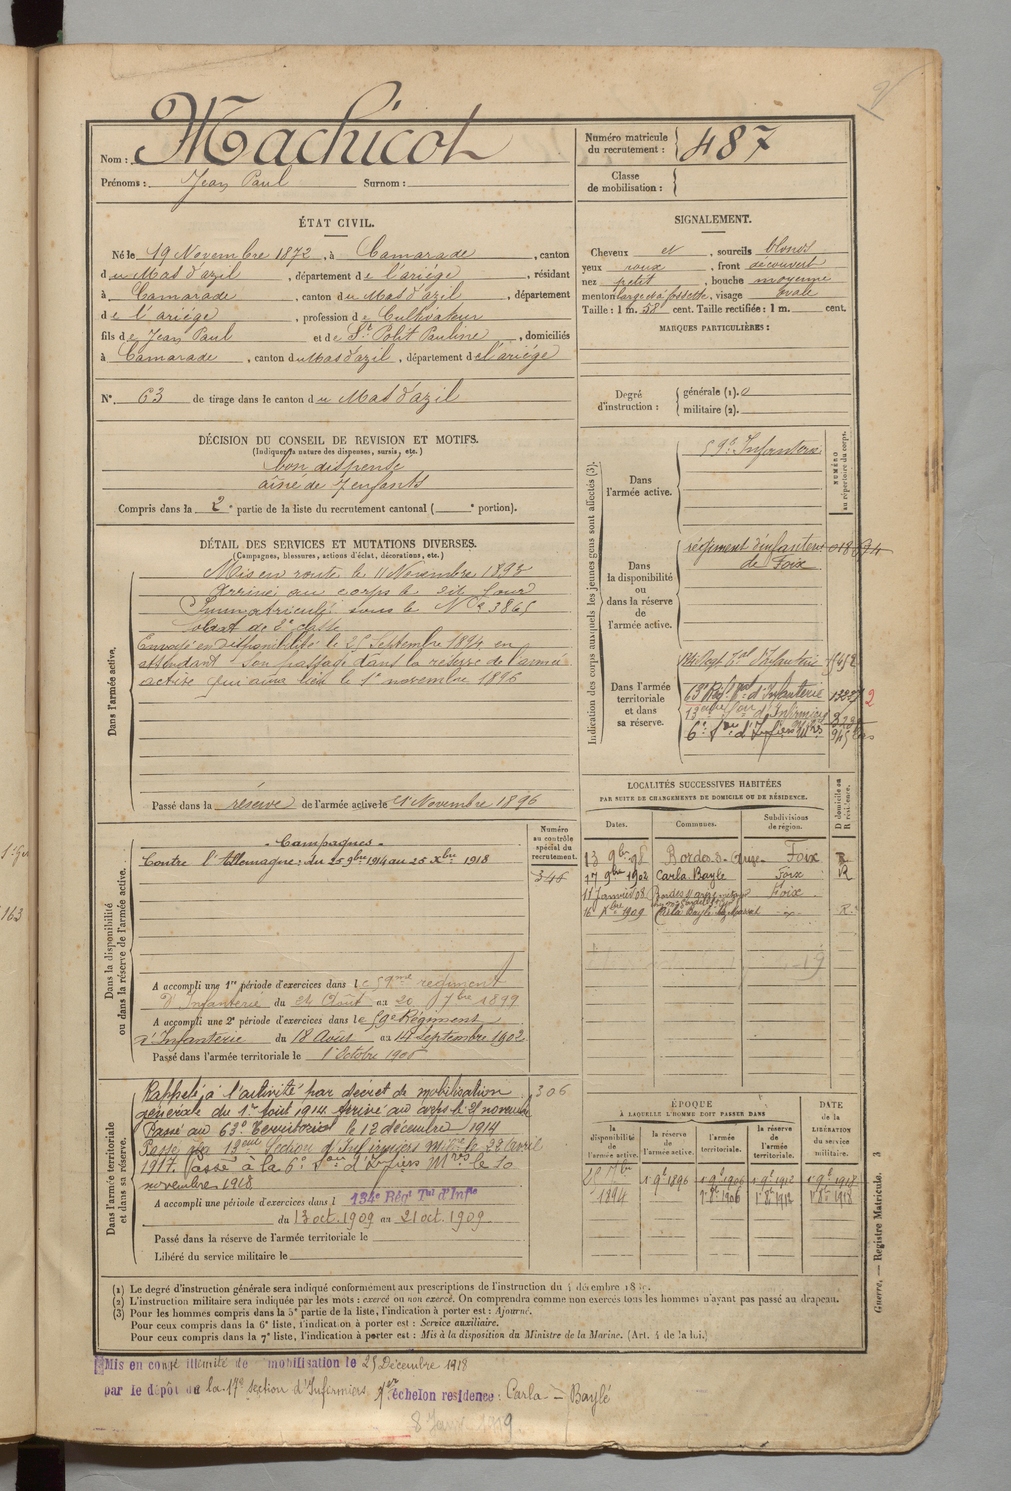 Nom : Machicot
Prénoms : Jean Paul Surnom :
Numéro matricule du recrutement : 487
Classe de mobilisation :
ÉTAT CIVIL.
Né le 19 Novembre 1872, à Camarade, canton
du Mas d'azil, département de l'ariège, résidant
à Camarade, canton du Mas d'azil, département
de l'ariége, profession de Cultivateur
fils de Jean Paul et de St Polit Pauline, domiciliés
à Camarade, canton du Mas d'azil, département de l'ariége
N° 63 de tirage dans le canton du Mas d'azil
SIGNALEMENT.
Cheveux et, sourcils blonds
yeux roux, front découvert
nez petit, bouche moyenne
menton large et à fossette, visage ovale
Taille : 1 m. 58 cent. Taille rectifiée : 1 m. cent.
MARQUES PARTICULIÈRES :
Degré d'instruction : générale (1). 0
militaire (2).
DÉCISION DU CONSEIL DE REVISION ET MOTIFS.
(Indiquer la nature des dispenses, sursis, etc.)
bon dispense
aîné de 7 enfants
Compris dans la 2e partie de la liste du recrutement cantonal ( e portion).
DÉTAIL DES SERVICES ET MUTATIONS DIVERSES.
(Campagnes, blessures, actions d'éclat, décorations, etc.)
Dans l'armée active.
Mis en route le 11 Novembre 1893
arrivé au corps le dit jour
Immatriculé sous le N° 3865
Soldat de 2e classe
Envoyé en disponibilité le 25 Septembre 1894 en
attendant son passage dans la réserve de l'armée
active qui aura lieu le 1er novembre 1896
Passé dans la réserve de l'armée active le 1er Novembre 1896
Indication des corps auxquels les jeunes gens sont affectés (3).
NUMÉRO au répertoire du corps.
Dans l'armée active.
59e Infanterie
Dans la disponibilité ou dans la réserve de l'armée active.
régiment d'infanterie
de Foix
Dans l'armée territoriale et dans sa réserve.
63e Régt Tal d'Infanterie
6e Son d'Infiers Mres
LOCALITÉS SUCCESSIVES HABITÉES
PAR SUITE DE CHANGEMENTS DE DOMICILE OU DE RÉSIDENCE.
D domicile ou R résidence.
Dates. Communes. Subdivisions de région.
13 9bre 98 Bordes-s-Arize Foix R
17 9bre 1902 Carla Bayle Foix R
11 Janvier 08 Foix
16 Xbre 1909 Carla Bayle R.
Dans la disponibilité ou dans la réserve de l'armée active.
Numéro au contrôle spécial du recrutement.
Campagnes
Contre l'Allemagne : du 25 9bre 1914 au 25 Xbre 1918
A accompli une 1re période d'exercices dans le 59eme régiment
D'Infanterie du 24 Août au 20 7bre 1899
A accompli une 2e période d'exercices dans le 59e Régiment
d'Infanterie du 18 Août au 14 Septembre 1902
Passé dans l'armée territoriale le 1er Octobre 1906
Dans l'armée territoriale et dans sa réserve.
306
Rappelé à l'activité par décret de mobilisation
générale du 1er Août 1914 Arrivé au corps le 25 novembre
Passé au 63e Territorial le 12 décembre 1914
Passé à la 13eme Section d'Infirmiers Milit le 22 avril
1917. Passé à la 6e Son d'Infiers Mres le 10
novembre 1918
A accompli une période d'exercices dans l 134e Régt Tal d'Infie
du 13 oct. 1909 au 21 oct. 1909
Passé dans la réserve de l'armée territoriale le
Libéré du service militaire le
ÉPOQUE
À LAQUELLE L'HOMME DOIT PASSER DANS
la disponibilité de l'armée active. la réserve de l'armée active. l'armée territoriale. la réserve de l'armée territoriale.
DATE de la LIBÉRATION du service militaire.
25 7bre 1894 1er 9bre 1896 1er 9bre 1906 1er 9bre 1912 1er 9bre 1918
1er 8bre 1906 1er 8bre 1912 1er 8bre 1918
Guerre. — Registre Matricule. 3
(1) Le degré d'instruction générale sera indiqué conformément aux prescriptions de l'instruction du décembre
(2) L'instruction militaire sera indiquée par les mots : exercé ou non exercé. On comprendra comme non exercés tous les hommes n'ayant pas passé au drapeau.
(3) Pour les hommes compris dans la 5e partie de la liste, l'indication à porter est : Ajourné.
Pour ceux compris dans la 6e liste, l'indication à porter est : Service auxiliaire.
Pour ceux compris dans la 7e liste, l'indication à porter est : Mis à la disposition du Ministre de la Marine. (Art. 4 de la loi.)
Mis en congé illimité de mobilisation le 25 Décembre 1918
par le dépôt de la 17e section d'Infirmiers échelon résidence : Carla-Baylé